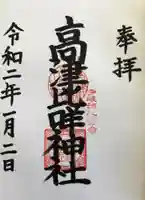 奉拝
高津比咩神社
令和二年一月二日